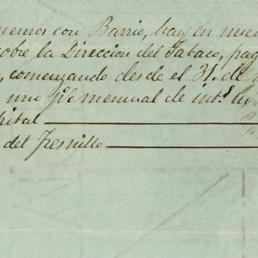 menros con Barrio, hay en nues
sobre la Direccion del Tabaco, pag
, comenzando desde el 31. de
un p% mensual de int.s
pital
del Fresnillo